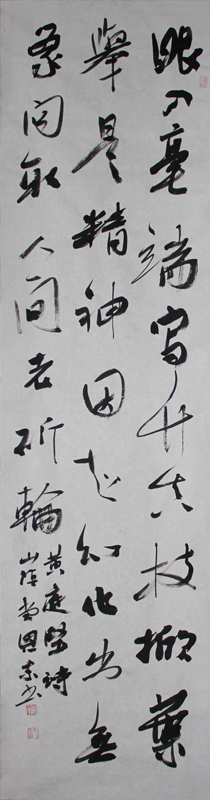 眼入毫端寫竹真枝掀葉
舉是精神因知幻化出無
象問取人間老斫輪
黃庭堅詩